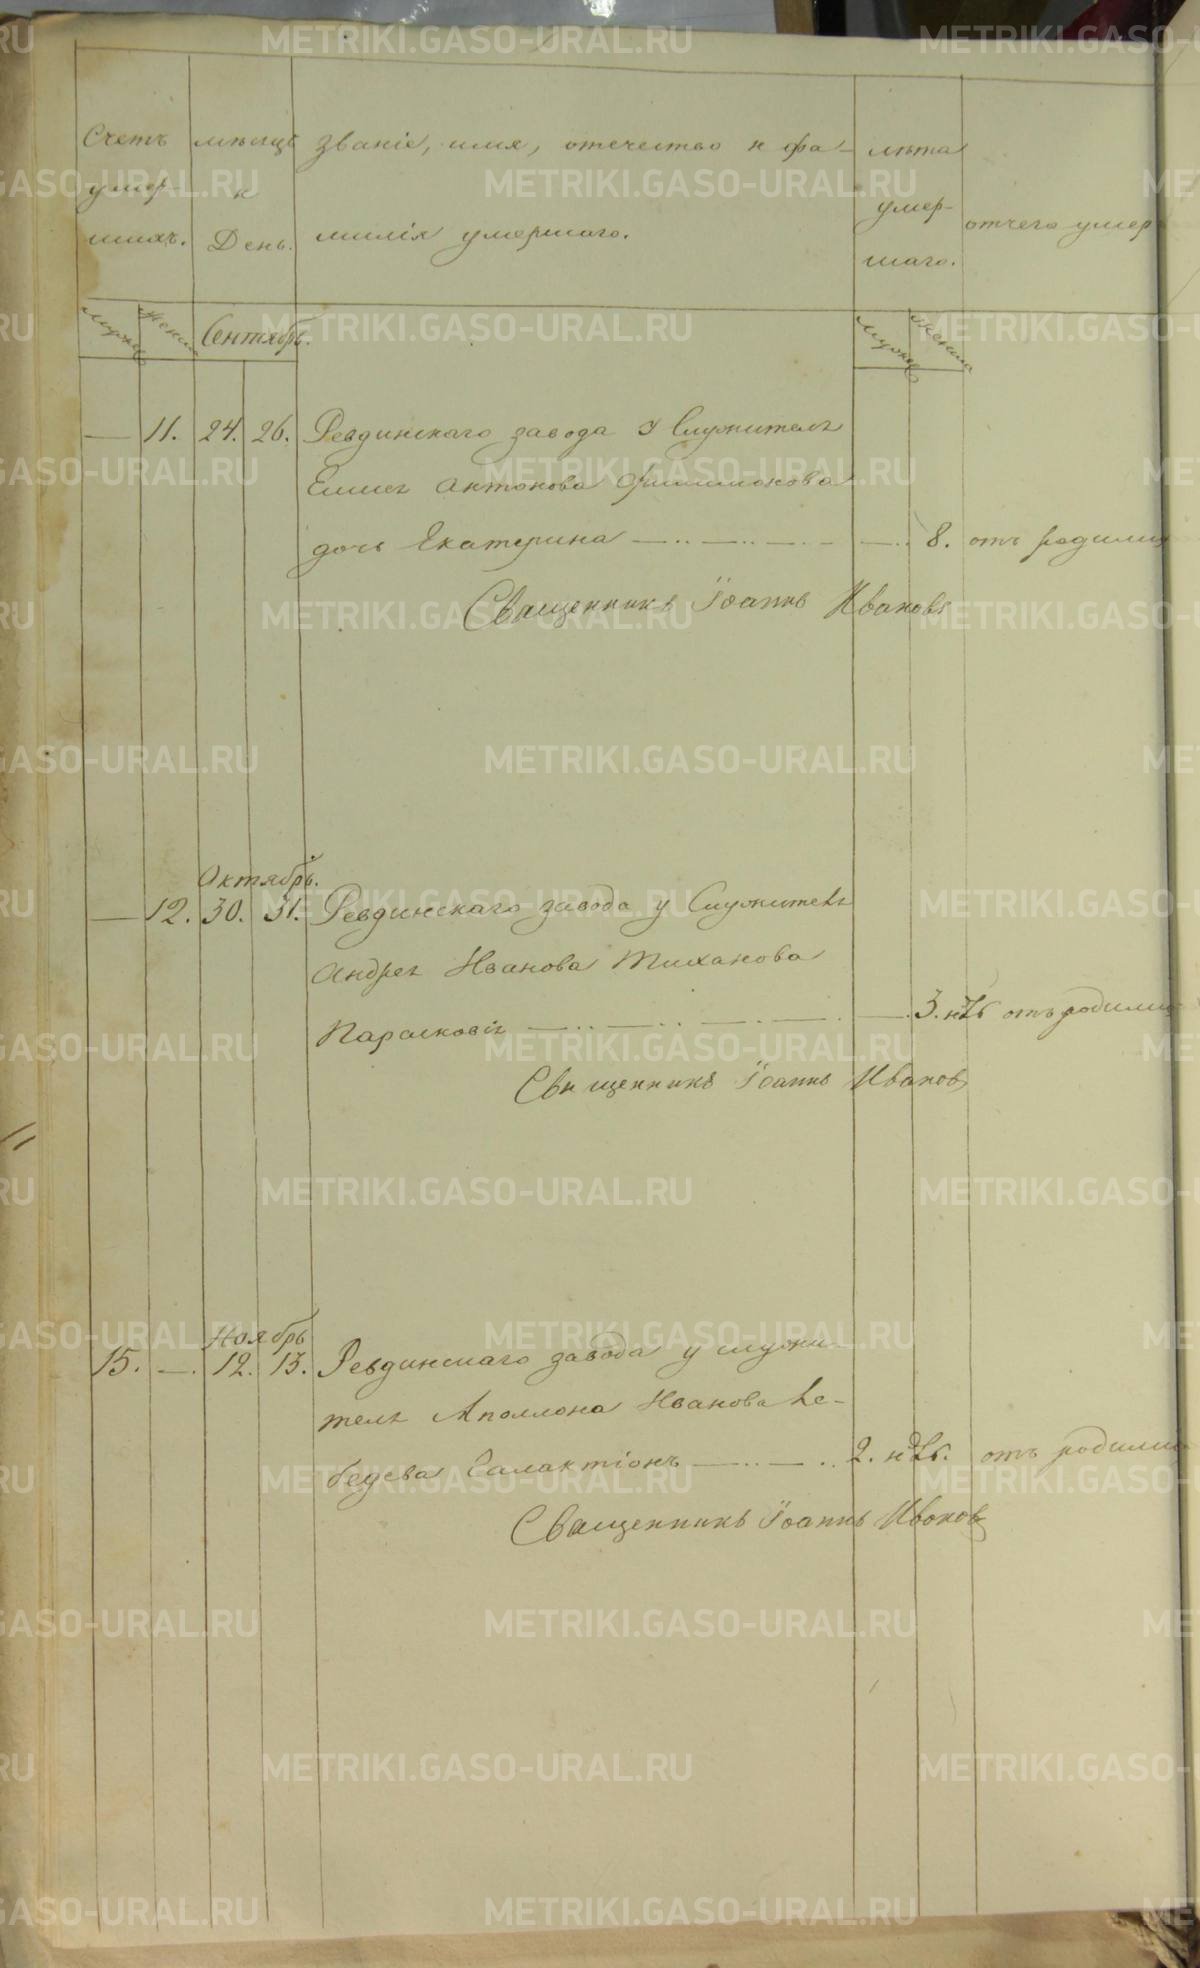 METRIKI.GASO-URAL.RU
Счетъ умер- шихъ.
мѣсяцъ и День.
званіе, имя, отечество и фа-
милія умершаго.
лѣта умер- шаго.
отчего умер
Сентябрь.
— 11. 24. 26. Ревдинскаго завода у Служителя
Антонова Филимонова
дочь Екатерина — 8. отъ родимца
Священникъ Іоаннъ Ивановъ
Октябрь.
— 12. 30. 31. Ревдинскаго завода у Служителя
Андрея Иванова Тиханова
Парасковія — 3. нед. отъ родимца
Священникъ Іоаннъ Ивановъ
Ноябрь
15. — 12. 13. Ревдинскаго завода у служи-
теля Аполлона Иванова Ле-
бедева Галактіонъ — 2. нед. отъ родимца
Священникъ Іоаннъ Ивановъ